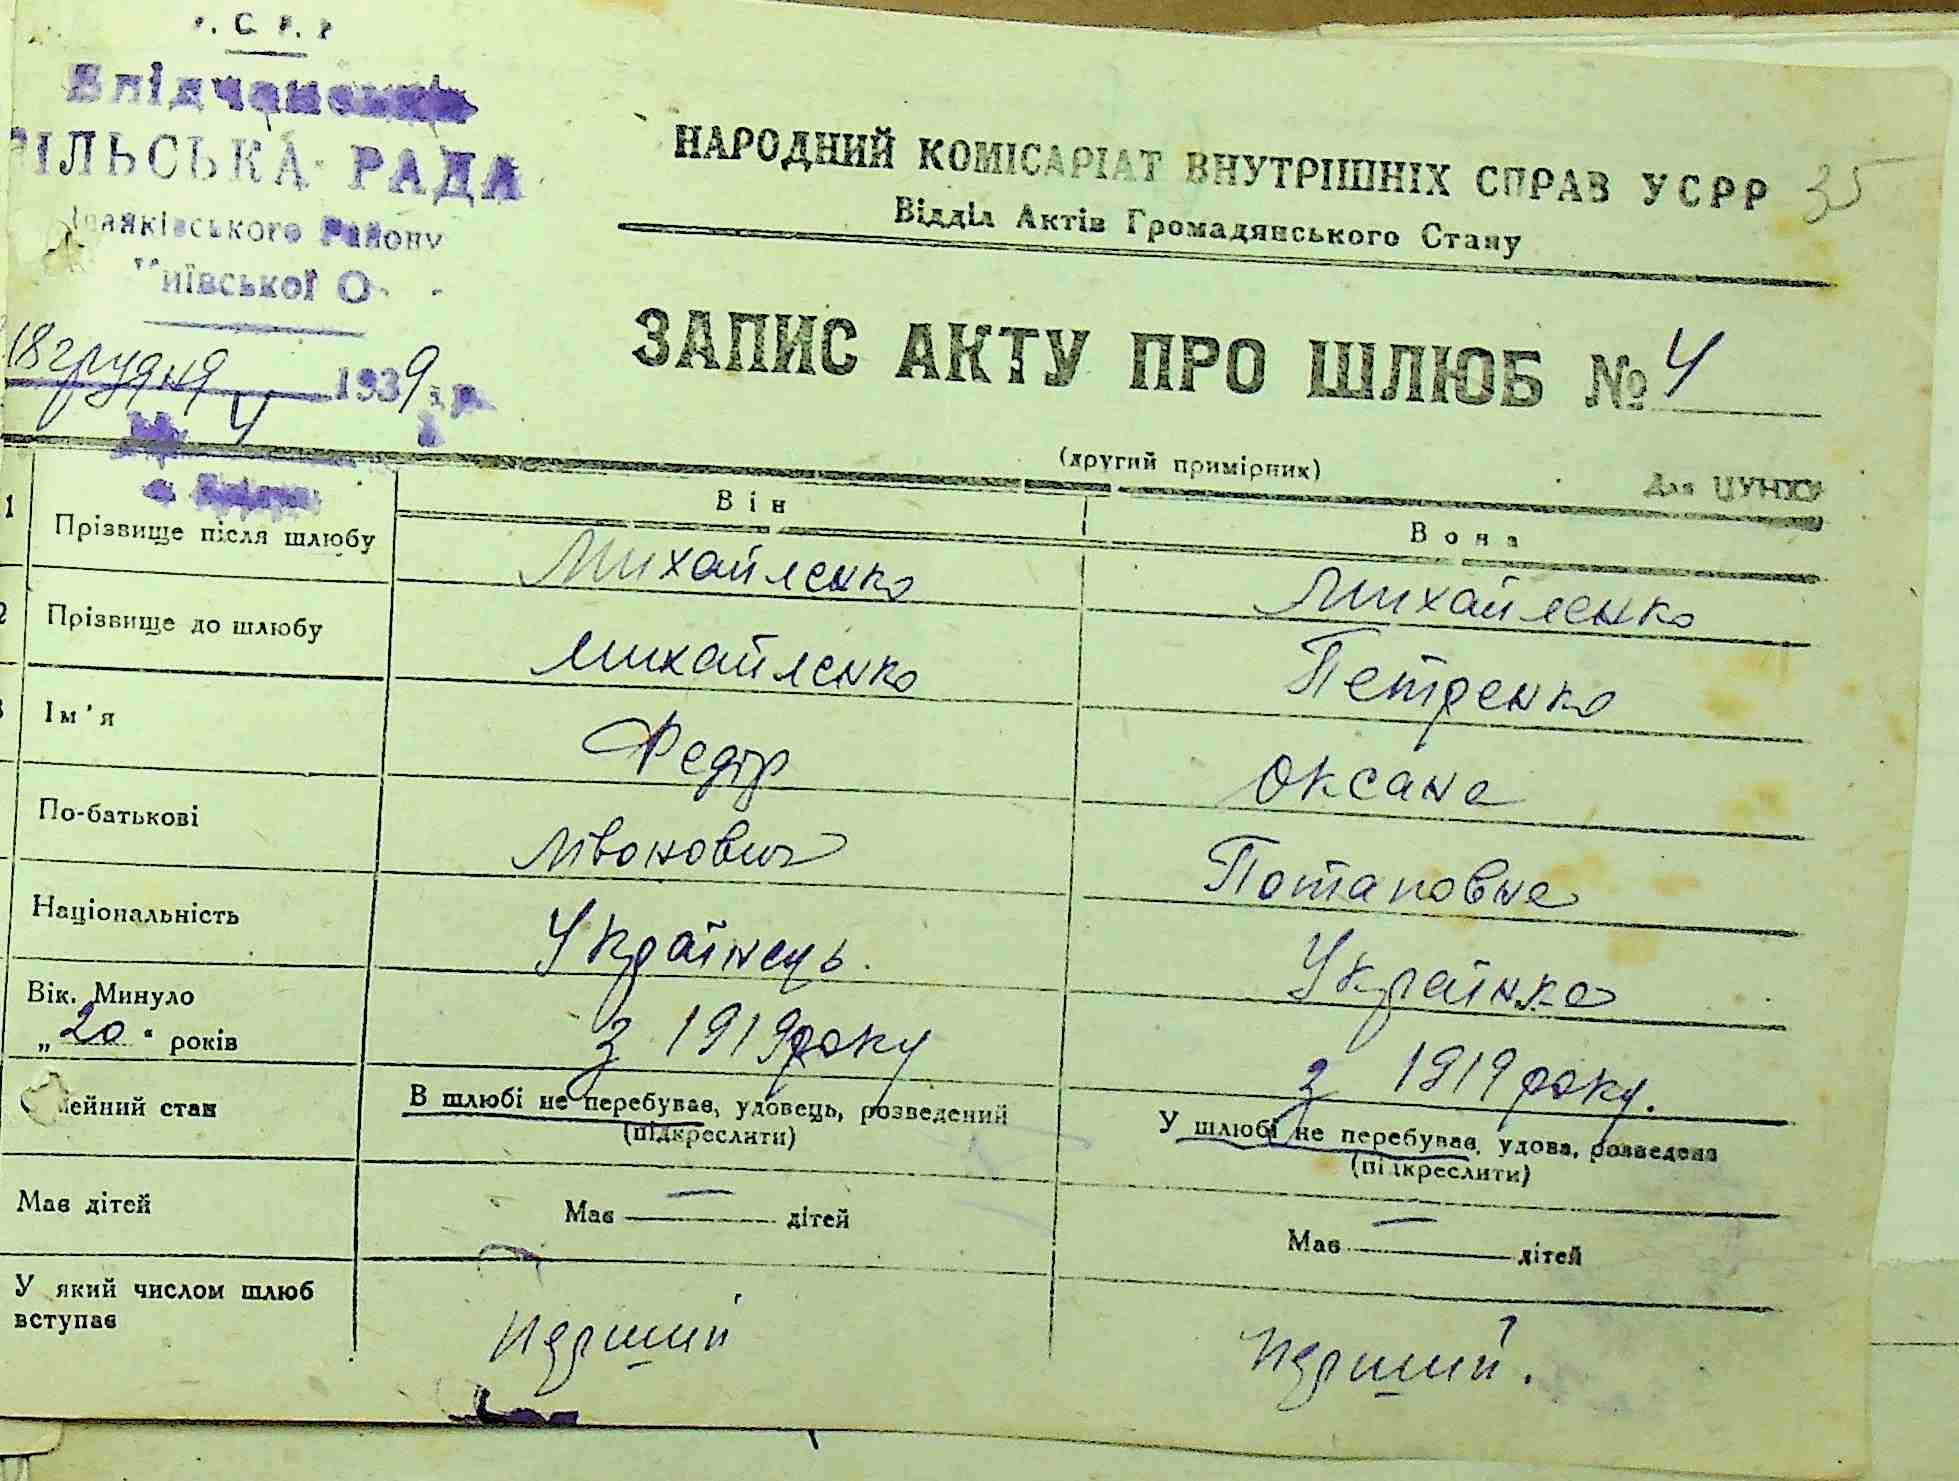 Впідчанська
СІЛЬСЬКА РАДА
Району
Київської
18 грудня 1939 р.
4
НАРОДНИЙ КОМІСАРІАТ ВНУТРІШНІХ СПРАВ УСРР 35
Відділ Актів Громадянського Стану
ЗАПИС АКТУ ПРО ШЛЮБ № 4
(другий примірник) Для ЦУНХУ
Він Вона
1 Прізвище після шлюбу Михайленко Михайленко
2 Прізвище до шлюбу Михайленко Петренко
3 Ім'я Федір Оксана
По-батькові Лівонович Потаповна
Національність Українець. Українка
Вік. Минуло
„20“ років з 1919 року з 1919 року.
мейний стан В шлюбі не перебував, удовець, розведений У шлюбі не перебував, удова, розведена
(підкреслити) (підкреслити)
Має дітей Має — дітей Має — дітей
У який числом шлюб
вступає перший перший.